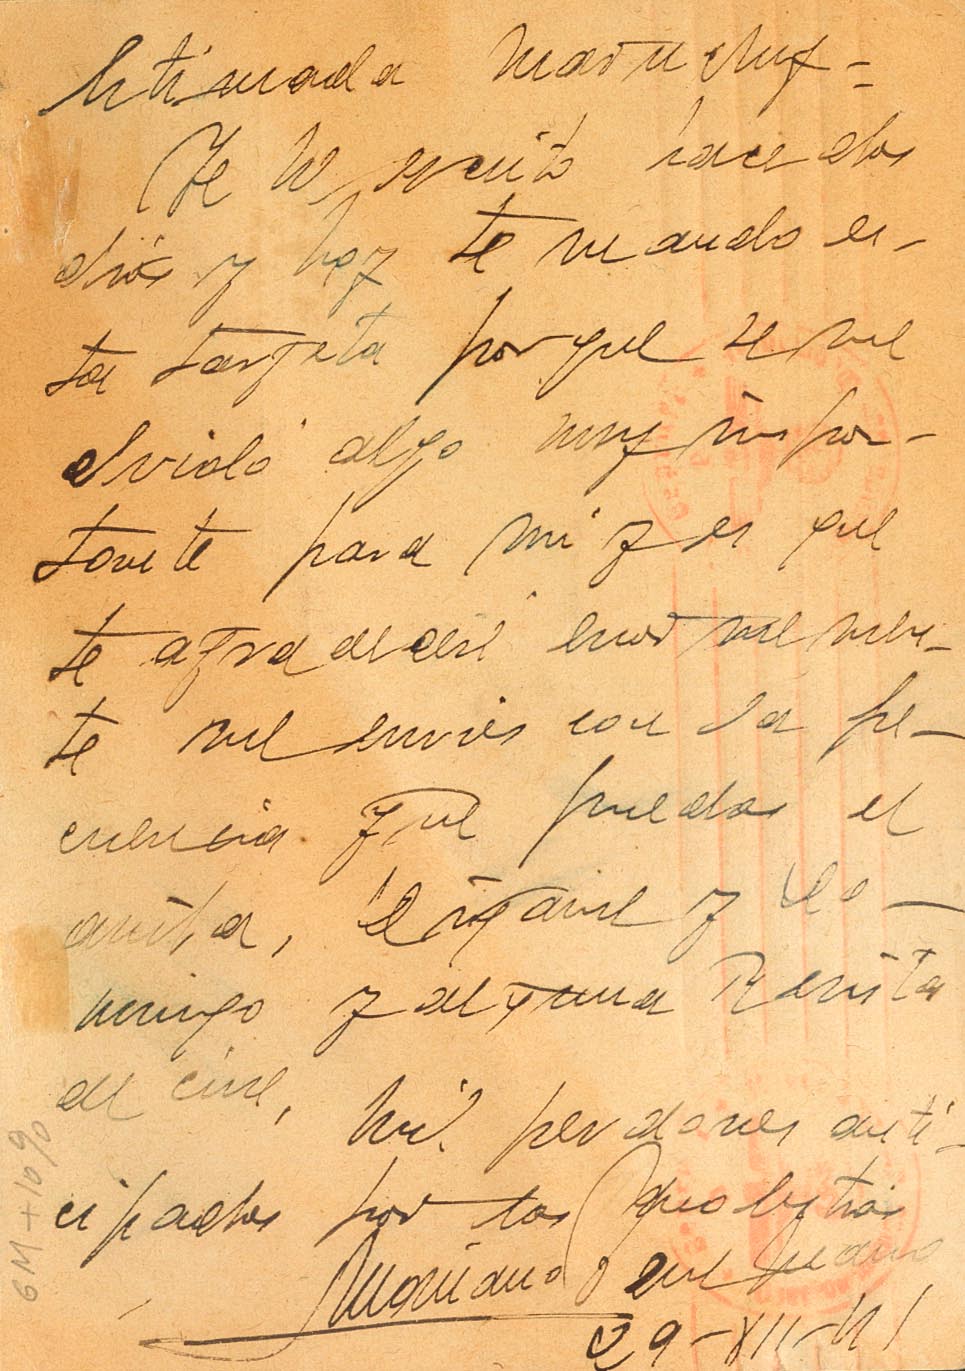 Estimada Maruchy =
Te he escrito hace dos
días y hoy te mando es-
ta tarjeta porque se me
olvidó algo muy impor-
tante para mi y es que
te agradeceré enormemen-
te me envies con la fre-
cuencia que puedas el
y Do-
mingo y alguna Revista
de cine, Mil perdones anti-
cipados por las molestias
Mariano
29-XII-41
6M+10%